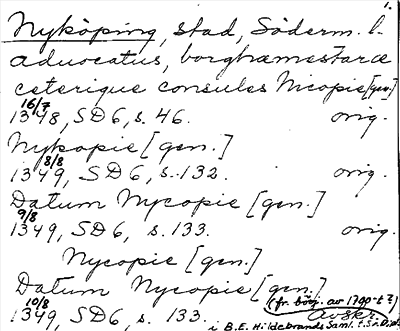 1.
Nyköping, stad, Söderm. l.
aduocatus, borghamestaræ
ceterique consules Nicopie [gen.]
16/7
1348, SD6, s. 46. orig.
Nykopie [gen.]
8/8
1349, SD6, s. 132. orig.
Datum Nycopie [gen.]
9/8
1349, SD6, s. 133. orig.
Nycopie [gen.]
Datum Nycopie [gen.]
(fr. börj. av 1790-t?)
10/8
1349, SD6, s. 133. Avskr.
i B.E. Hildebrands Saml. t. Sv. D.